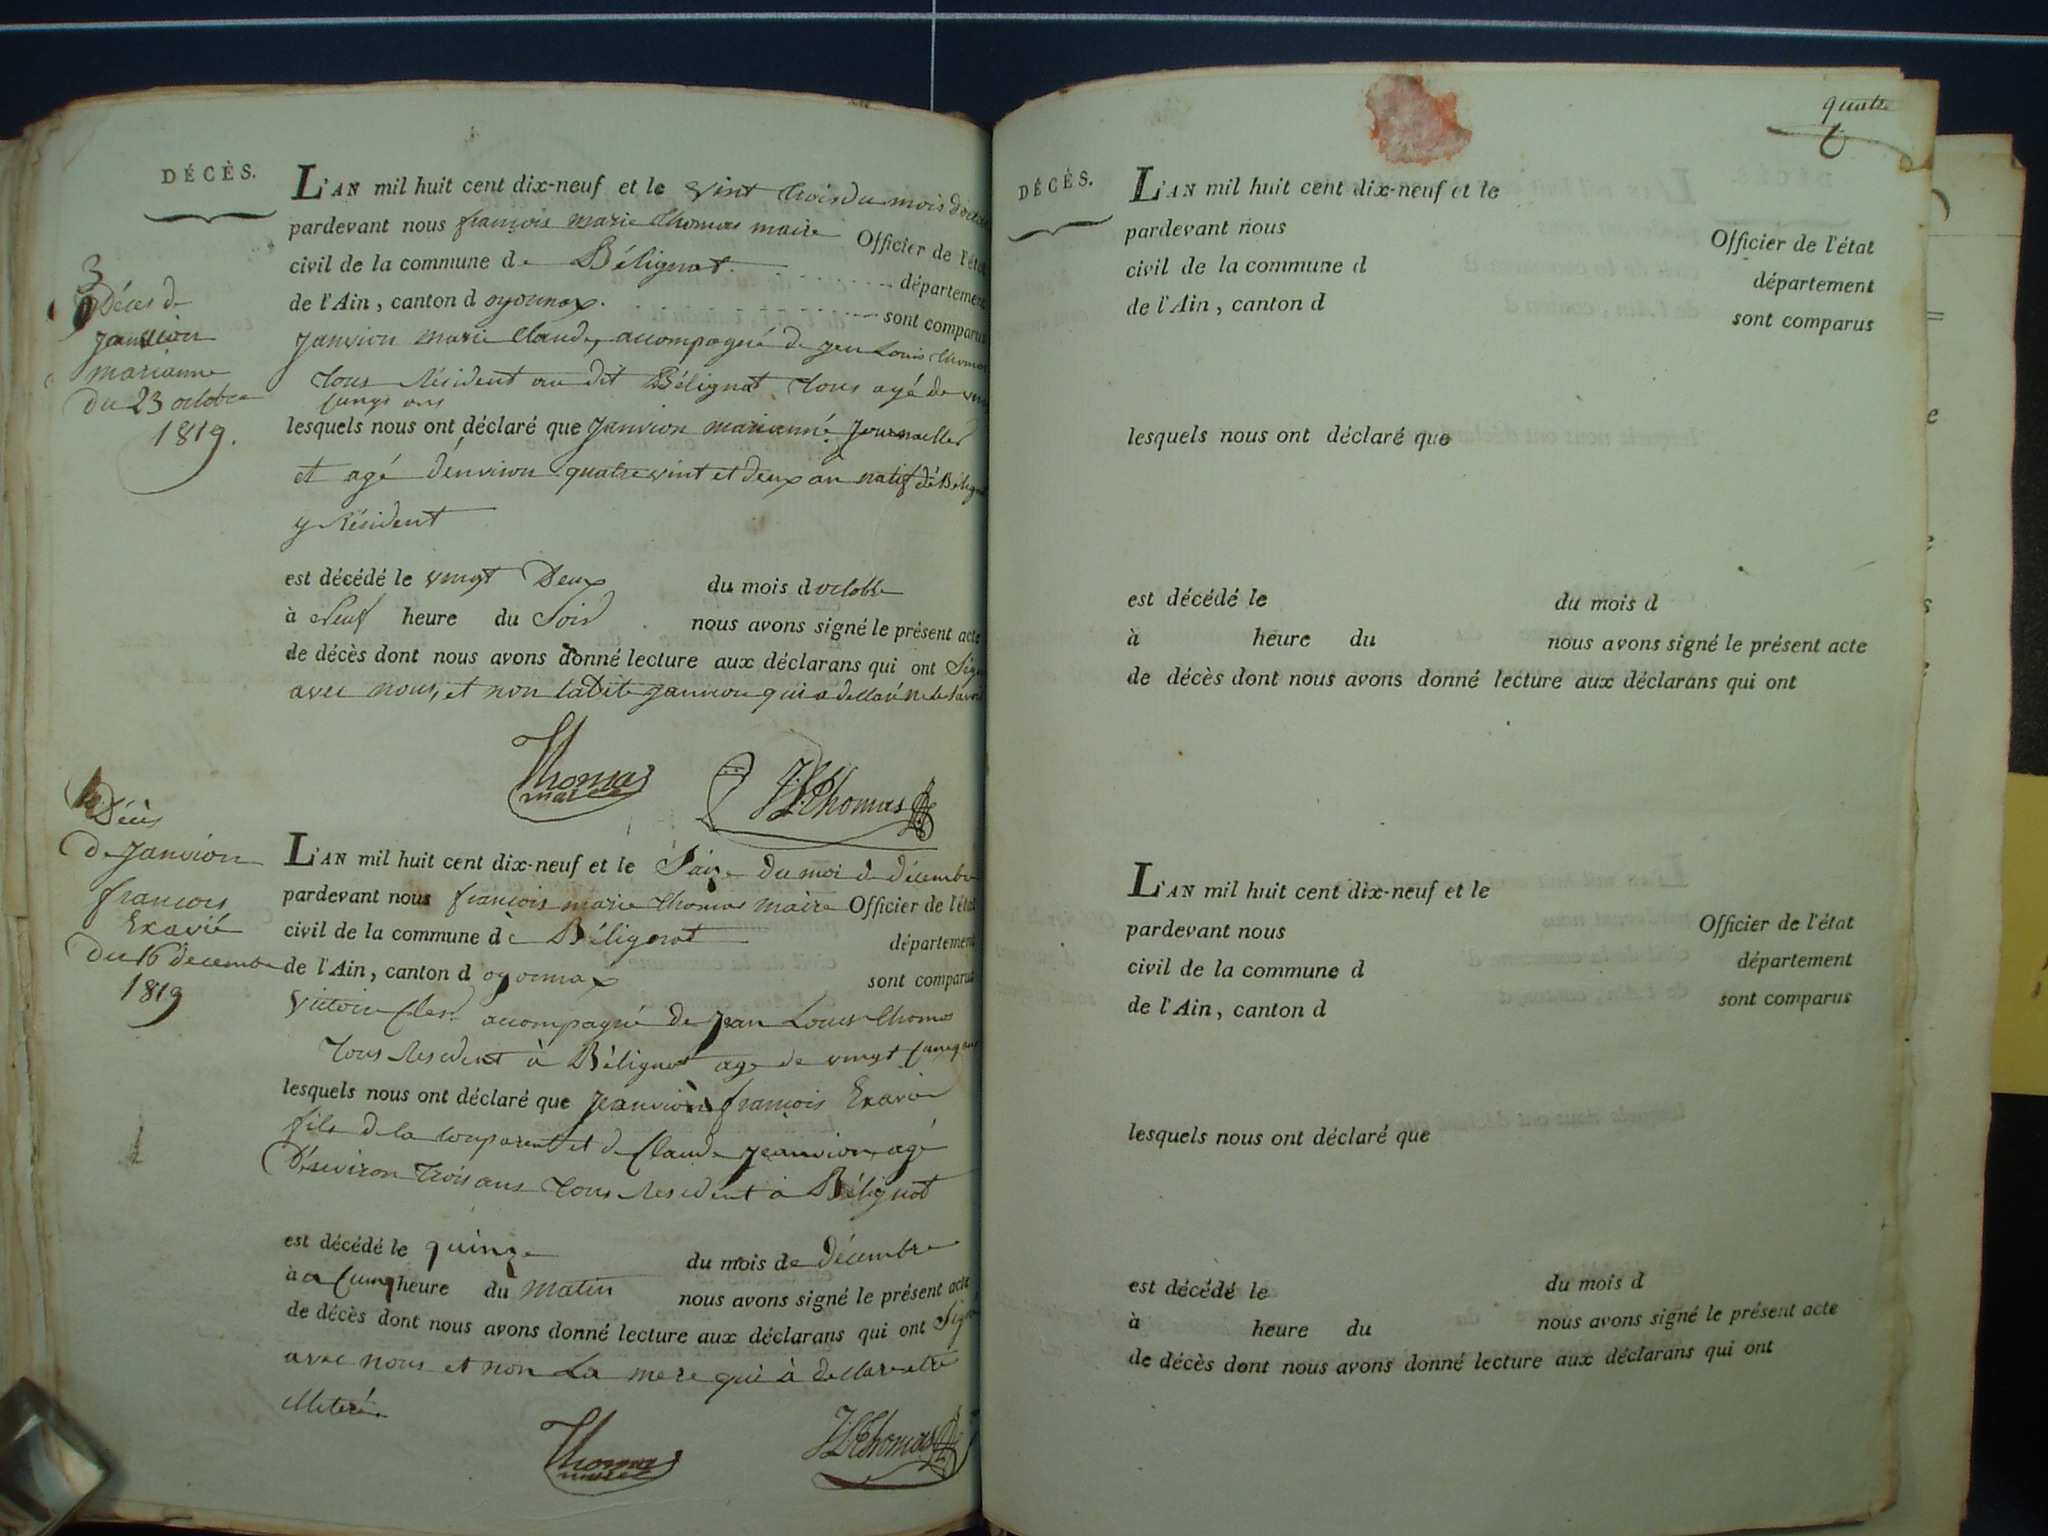 DÉCÈS.
L'AN mil huit cent dix-neuf et le vint trois du mois d'octobre
pardevant nous françois marie thomas maire Officier de l'état
civil de la commune de Bélignat département
de l'Ain, canton d oyonnax. sont comparus
Janvion marie Claude, accompagné de jeu Louis thomas
tous Résident au dit Bélignat tous agé de vint
cunqs ans
lesquels nous ont déclaré que Janvion marianne Journallier
et agé d'environ quatre vint et deux an natif de Bélignat
y Résident
est décédé le vingt Deux du mois d octobre
à Neuf heure du Soir nous avons signé le présent acte
de décès dont nous avons donné lecture aux déclarans qui ont Signé
avec nous, et non ladite janvion qui a dellaré ne le savoir
Thomas
maire
JLThomas
3
Déces de
janvion
marianne
du 23 octobre
1819.
Décès
de Janvion
françois
Exavié
du 16 decembre
1819
L'AN mil huit cent dix-neuf et le Saize du moi de décembre
pardevant nous françois marie thomas maire Officier de l'état
civil de la commune dè Bélignat département
de l'Ain, canton d oyonnax sont comparus
Victoire accompagné de Jean Louis thomas
tous Resident à Bélignat age de vingt cunq ans
lesquels nous ont déclaré que Jeanvion françois Exavié
fils de la comparent et de Claude Jeanvion, agé
D'environ trois ans tous Resident à Bélignat
est décédé le quinze du mois de décembre
à a cunq heure du matin nous avons signé le présent acte
de décès dont nous avons donné lecture aux déclarans qui ont Signé
avec nous et non La mere qui à dellare etre
illeteré.
Thomas
maire
JLThomas
quatre
DÉCÈS.
L'AN mil huit cent dix-neuf et le
pardevant nous Officier de l'état
civil de la commune d département
de l'Ain, canton d sont comparus
lesquels nous ont déclaré que
est décédé le du mois d
à heure du nous avons signé le présent acte
de décès dont nous avons donné lecture aux déclarans qui ont
L'AN mil huit cent dix-neuf et le
pardevant nous Officier de l'état
civil de la commune d département
de l'Ain, canton d sont comparus
lesquels nous ont déclaré que
est décédé le du mois d
à heure du nous avons signé le présent acte
de décès dont nous avons donné lecture aux déclarans qui ont